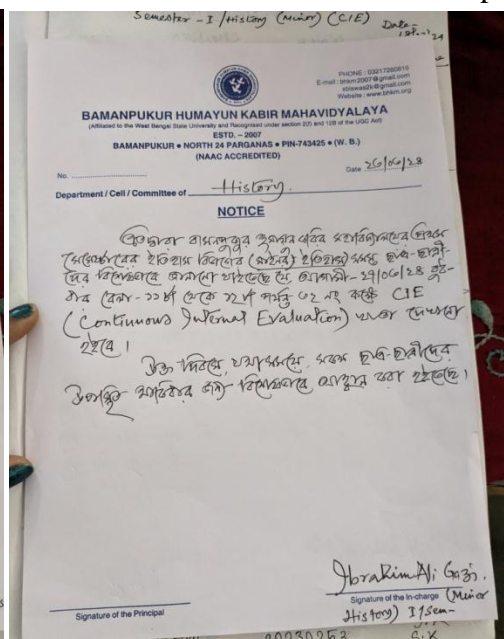 Semester - I / History (Minor) (CIE)
Date-
PHONE : 03217260815
E-mail : bhkm2007@gmail.com
Website : www.bhkm.org
BAMANPUKUR HUMAYUN KABIR MAHAVIDYALAYA
(Affiliated to the West Bengal State University and Recognised under section 2(f) and 12B of the UGC Act)
ESTD. – 2007
BAMANPUKUR • NORTH 24 PARGANAS • PIN-743425 • (W. B.)
(NAAC ACCREDITED)
No.
Date
Department / Cell / Committee of History.
NOTICE
এতদ্বারা বামনপুকুর হুমায়ুন কবির মহাবিদ্যালয়ের প্রথম
সেমেস্টারের ইতিহাস বিভাগের (মাইনর) ইতিহাস সমস্ত ছাত্র-ছাত্রী-
দের বিশেষভাবে জানানো যাইতেছে যে আগামী- বুধ-
বার বেলা- ১১টা থেকে ১২টা পর্যন্ত ৩২ নং কক্ষে CIE
(Continuous Internal Evaluation) খাতা দেখানো
হইবে।
উক্ত দিবসে, যথাসময়ে, সকল ছাত্র-ছাত্রীদের
উপস্থিত থাকিবার জন্য বিশেষভাবে আহ্বান করা হইতেছে।
Ibrahim Ali Gazi.
Signature of the Principal
Signature of the In-charge (Minor
History) 1st sem-
20230253
G.K